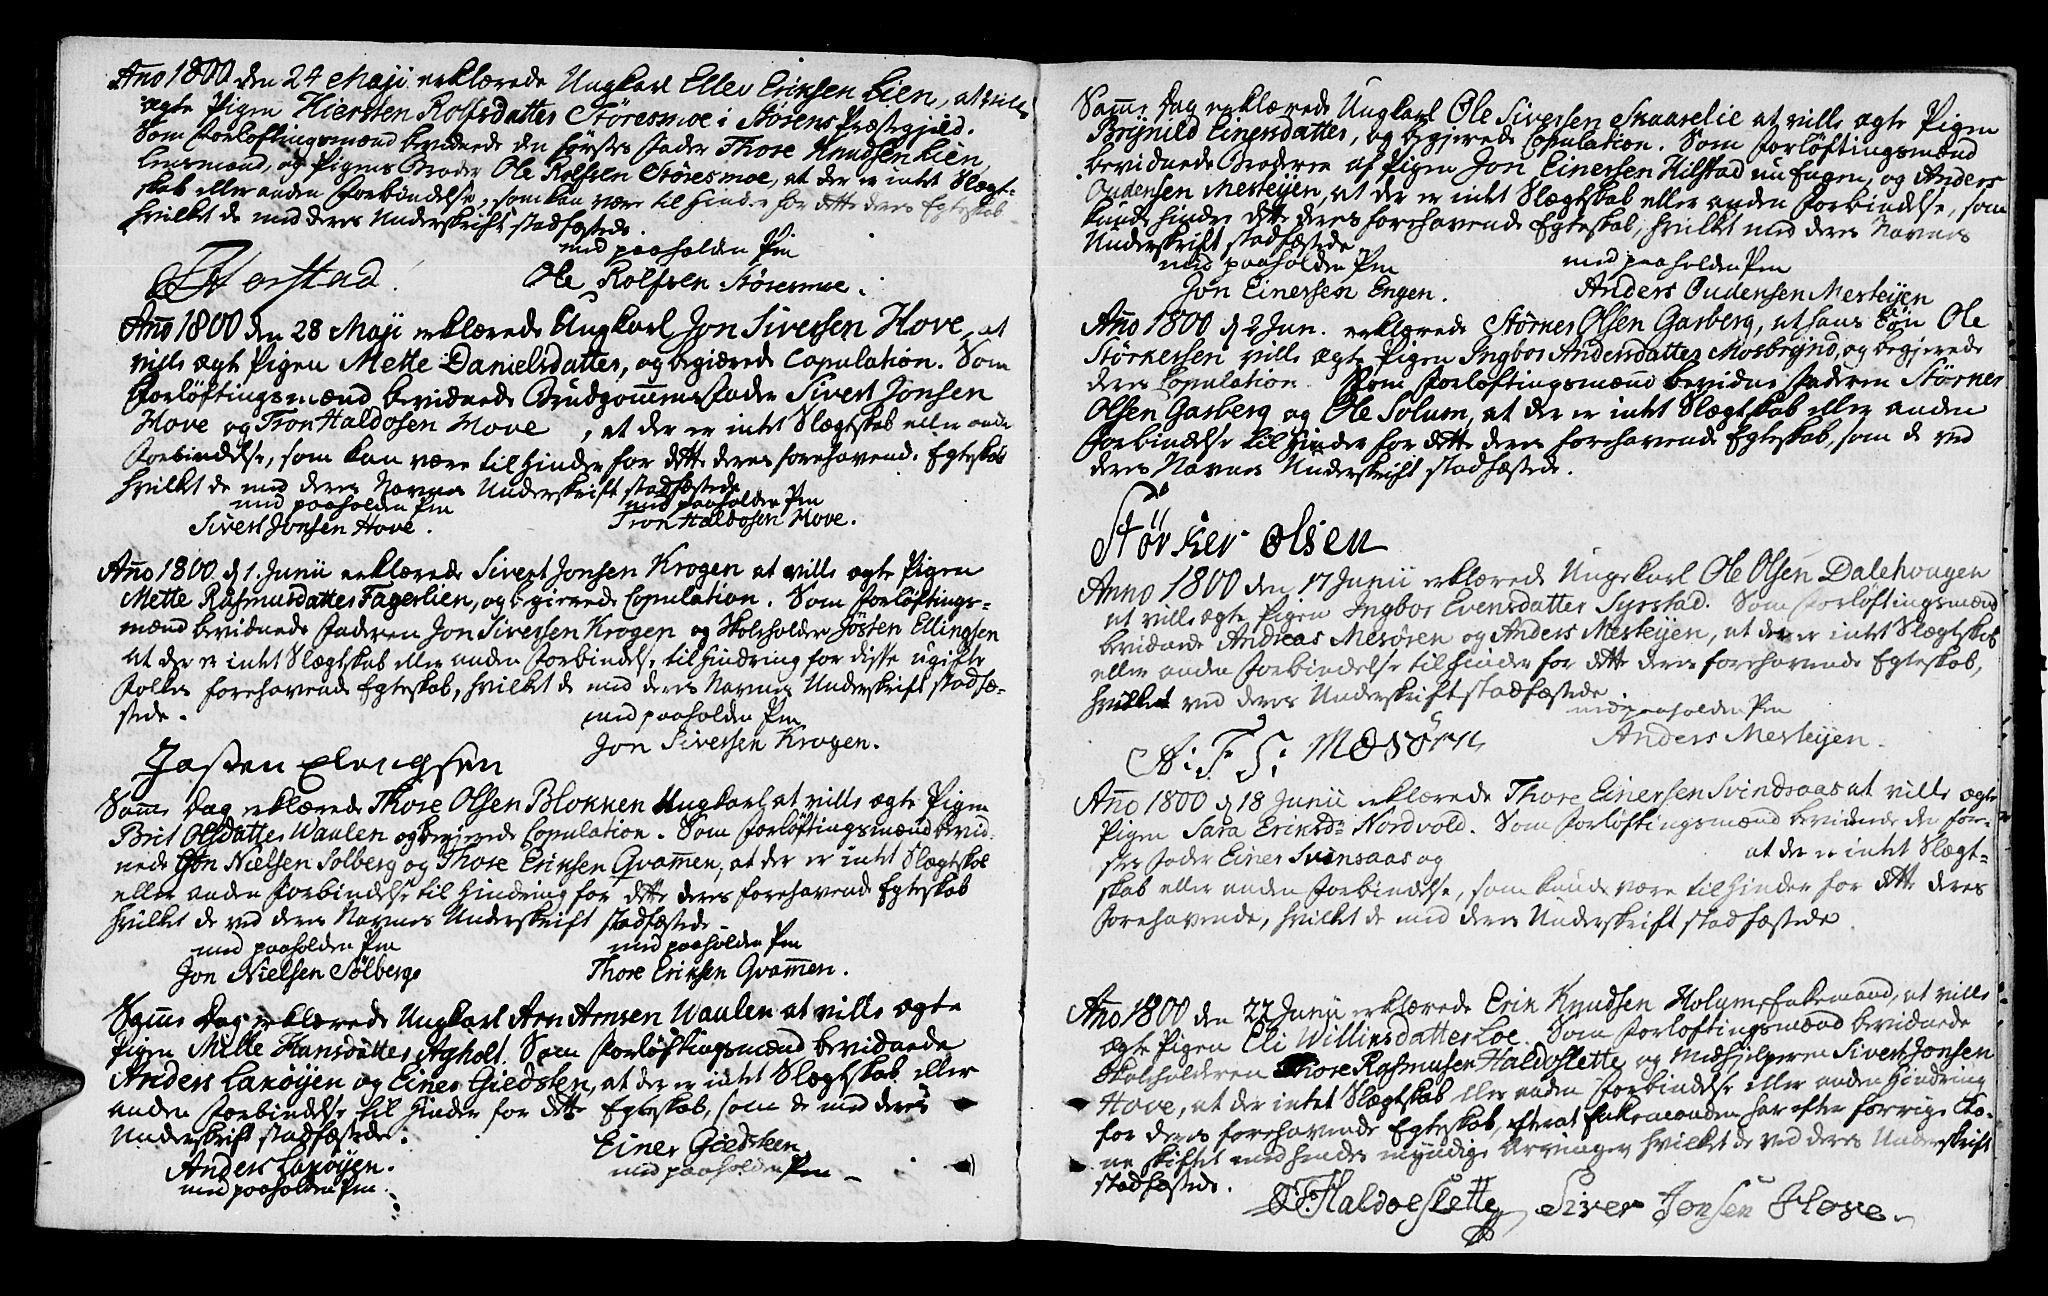 Año 1800 den 24 Maji erklærede Ungkarl Ellev Ericksen Lien, at ville
ægte Pigen Kiersten Rolfsdatter Störesmoe i Störens Præstegield.
Som Forloftingsmænd bevidnede den förstes Fader Thore Knudsen Lien,
Lensmand, og Pigens Broder Ole Rolfsen Störesmoe, at der er intet Slægt-
skab eller anden Forbindelse, som kan være til Hinder for dette deres Egteskab
hvilket de med deres Underskrift stadfæstede.
med paaholden Pen
Ole Rolfsen Störesmoe.
Año 1800 den 28 Maji erklærede Ungkarl Jon Siversen Hove, at
ville ægte Pigen Mette Danielsdatter, og begiærede Copulation. Som
Forlöftingsmænd bevidnede Brudgommens Fader Sivert Jonsen
Hove og Tron Haldosen Hove, at der er intet Slægtskab eller anden
Forbindelse, som kan være til Hinder for dette deres forehavende Egteskab
hvilket de med deres Navnes Underskrift stadfæstede
med paaholden Pen med paaholden Pen
Sivert Jonsen Hove. Tron Haldosen Hove.
Año 1800 d 1. Junii erklærede Sivert Jonsen Krogen at ville ægte Pigen
Mette Rasmusdatter Fagerlien, og begierede Copulation. Som Forlöftings-
mænd bevidnede Faderen Jon Siversen Krogen og Skoleholder Jösten Ellingsen
at der er intet Slægtskab eller anden Forbindelse til Hindring for disse ugifte
Folkes forehavende Egteskab, hvilket de med deres Navnes Underskrift stadfæ-
stede.
med paaholden Pen
Jon Siversen Krogen.
Josten Elengsen
Samme Dag erklærede Thore Olsen Blokken Ungkarl, at ville ægte Pigen
Brit Olsdatter Waulen og begierede Copulation. Som Forlöftingsmænd bevid-
nede Jon Nielsen Solberg og Thore Ericksen Qvammen, at der er intet Slægtskab
eller anden Forbindelse til Hindring for dette deres forehavende Egteskab
hvilket de ved deres Navnes Underskrift stadfæstede
med paaholden Pen med paaholden Pen
Jon Nielsen Sölberg Thore Eriksen Qvammen.
Samme Dag erklærede Ungkarl Arn Arnsen Waulen at ville ægte
Pigen Mille Hansdatter Agholt. Som Forlöftingsmænd bevidnede
Anders Laxöyen og Einer Giedsten, at der er intet Slægtskab eller
anden Forbindelse til Hinder for dette Egteskab, som de med deres
Underskrift stadfæstede.
Anders Laxöyen. Einer Giedsteen
med paaholden Pen med paaholden Pen
Samme Dag erklærede Ungkarl Ole Siversen Skaarelie at ville ægte Pigen
Brynild Einersdatter, og begjerede Copulation. Som Forlöftingsmænd
bevidnede Broderen af Pigen Jon Einersen Hilstad nu Engen, og Anders
Oudensen Mersteijen, at der er intet Slægtskab eller anden Forbindelse, som
kunde hindre dette deres forehavende Egteskab, hvilket med deres Navnes
Underskrift stadfæstede
med paaholden Pen med paaholden Pen
Jon Einersen Engen. Anders Oudensen Mersteijen
Año 1800 d 2 Jun. erklærede Störker Olsen Gasberg, at hans Sön Ole
Störkersen ville ægte Pigen Ingbor Andersdatter Mosbrynd, og begjerede
deres Copulation. Som Forlöftingsmænd bevidne Faderen Störker
Olsen Gasberg og Ole Solum, at der er intet Slægtskab eller anden
Forbindelse til Hinder for dette deres forehavende Egteskab, som de ved
deres Navnes Underskrift stadfæstede.
Störker olsen
Anno 1800 den 17 Junii erklærede Ungekarl Ole Olsen Dalehougen
at ville ægte Pigen Ingbor Evensdatter Syrstad. Som Forlöftingsmænd
bevidnede Andreas Mesören og Anders Mersteijen, at der er intet Slægtskab
eller anden Forbindelse til Hinder for dette deres forehavende Egteskab,
hvilket ved deres Underskrift stadfæstede
med paaholden Pen
A: F: S: Mæsörn Anders Mersteijen.
Año 1800 d 18 Junii erklærede Thore Einersen Svindsaas at ville ægte
Pigen Sara Eriksdr Nordvold. Som Forloftingsmænd bevidnede den för-
stes Fader Einer Svinsaas og at der er intet Slægt-
skab eller anden Forbindelse, som kunde være til Hinder for dette deres
Forehavende, hvilket de med deres Underskrift stadfæstede
Año 1800 den 22 Junii erklærede Erik Knudsen Holum, Enkemand, at ville
ægte Pigen Eli Willumsdatter Loe. Som Forloftingsmænd bevidnede
Skoleholderen Thore Rasmusen Haldoslette og Medhjelperen Sivert Jonsen
Hove, at der intet Slægtskab eller anden Forbindelse eller anden Hindring
for deres forehavende Egteskab, efterat Enkemanden har efter forrige Ko-
ne skiftet med hendes myndige Arvinger hvilket de ved deres Underskrift
stadfæstede.
Haldoeslette Siver Jonsen Hove.